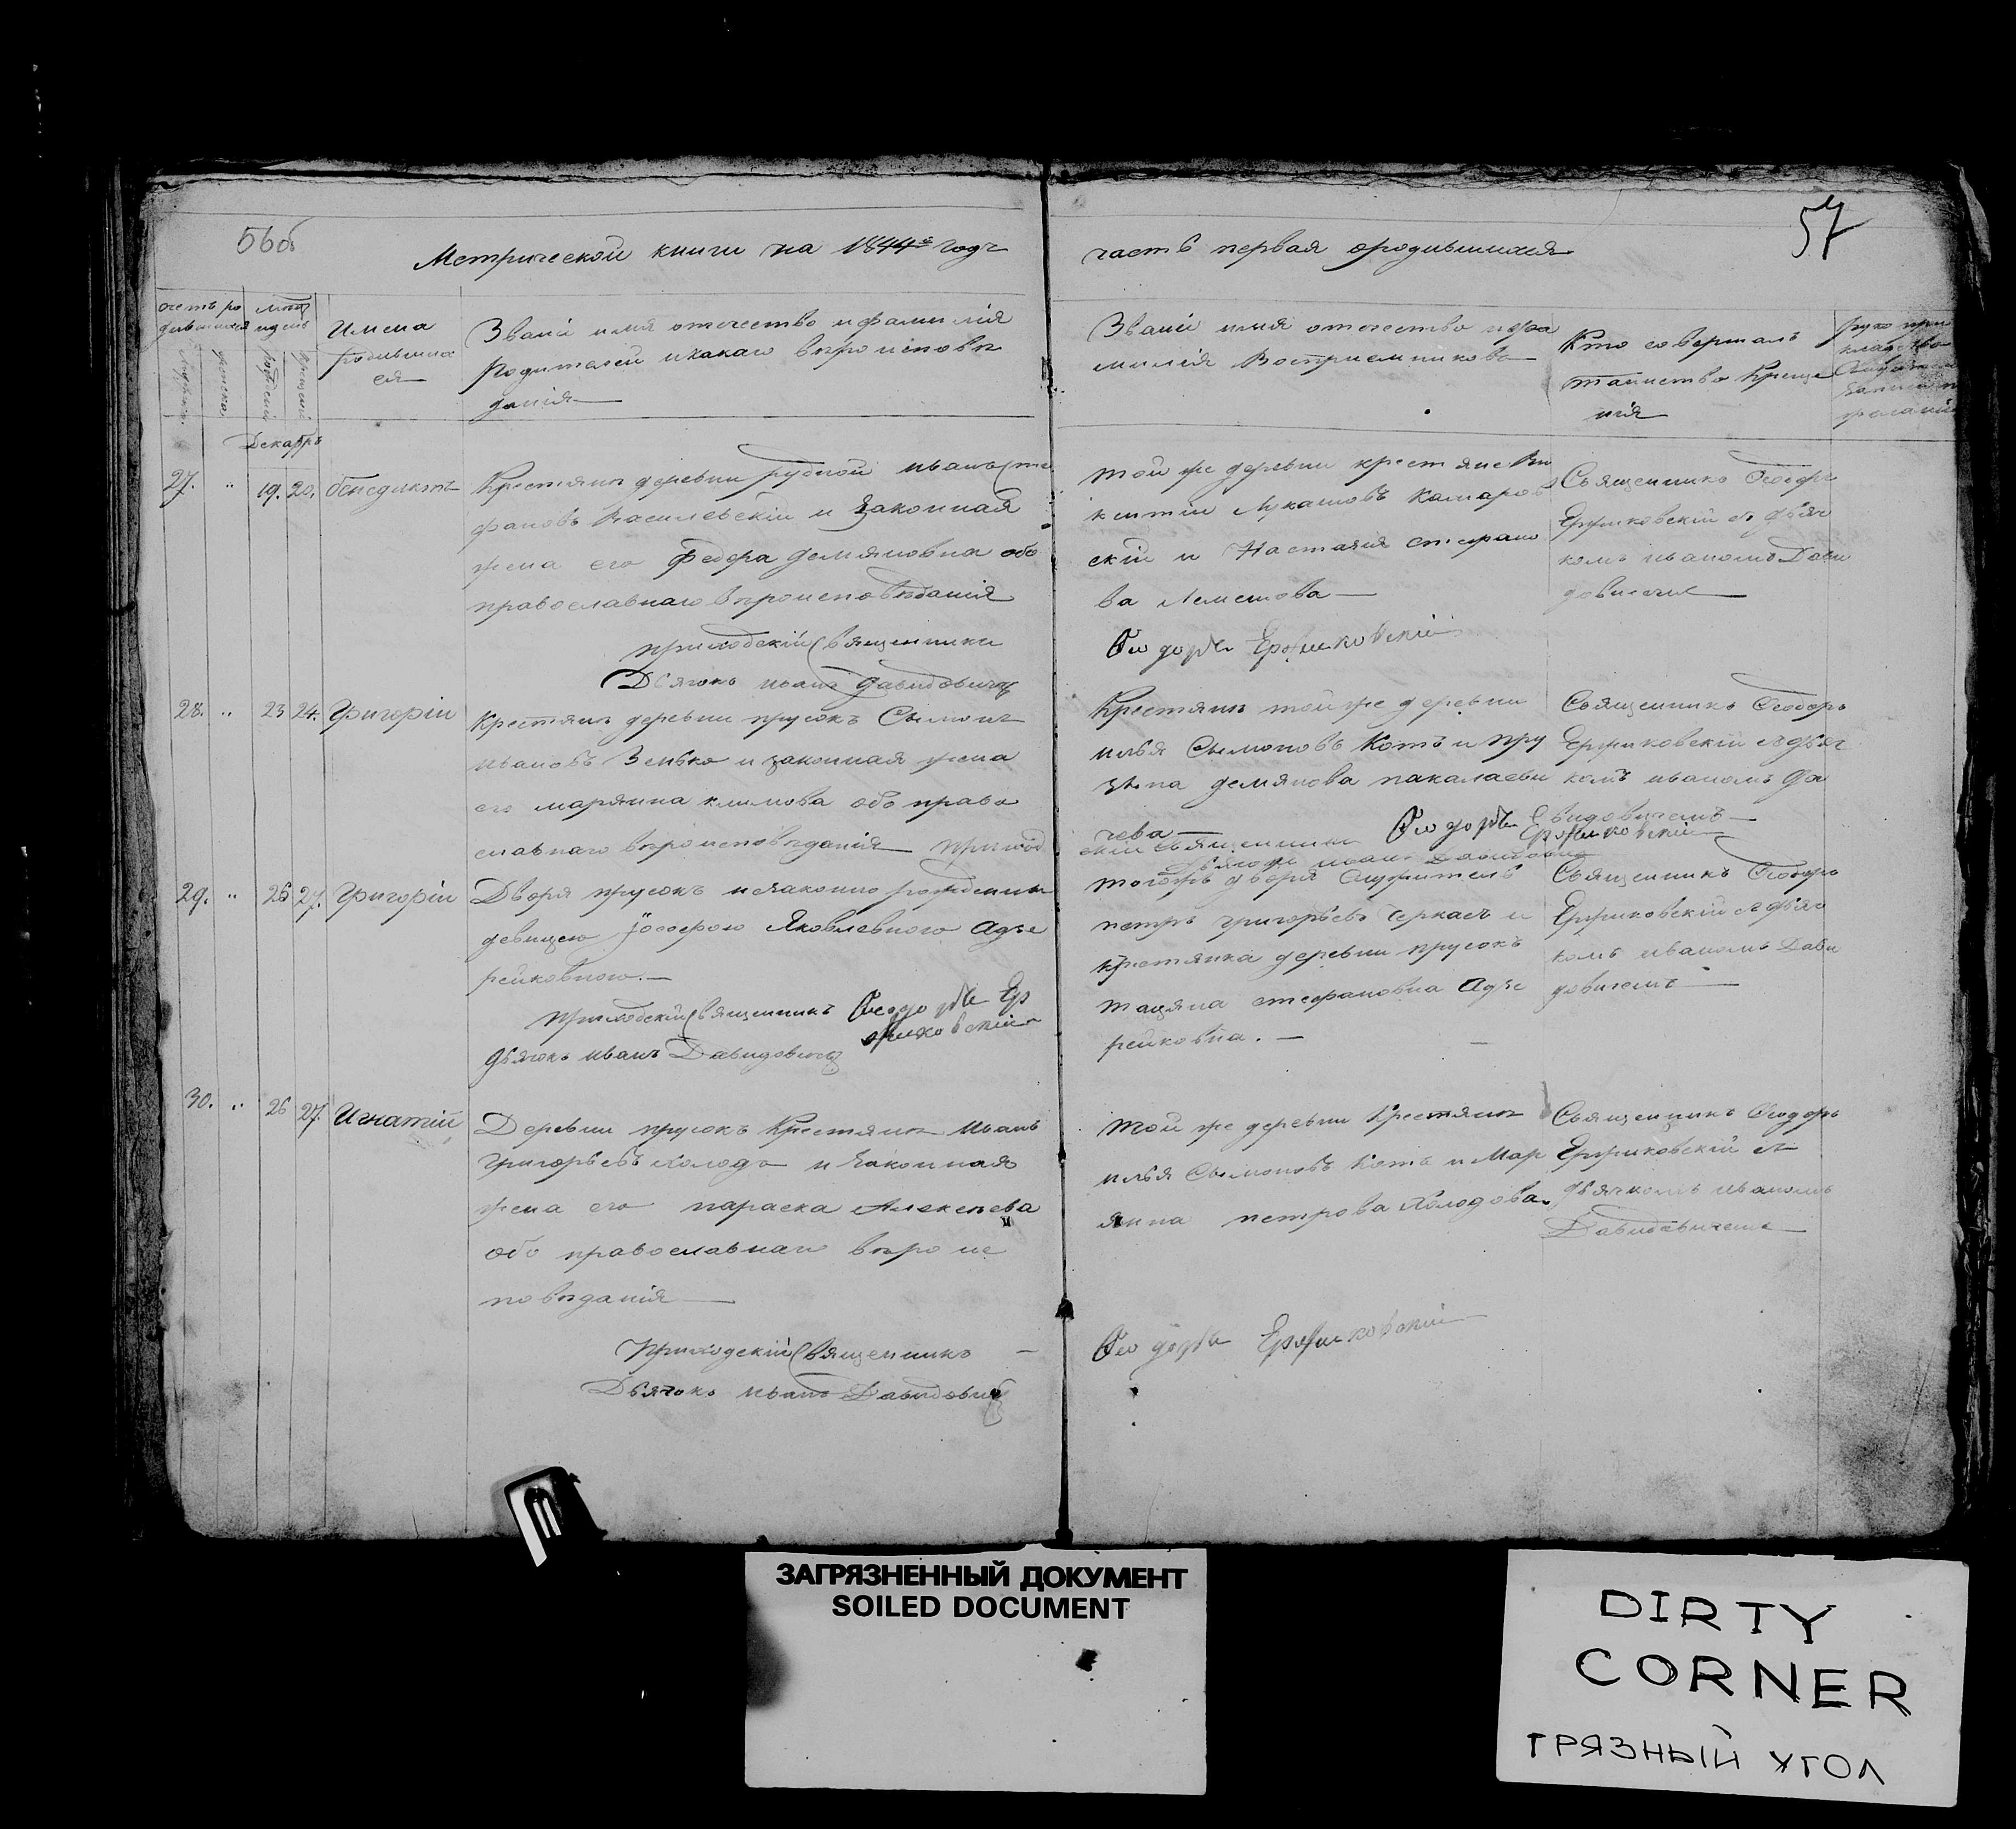 56об
57
Метрической книги на 1844й годъ
часть первая ородившихся
счетъ ро
дившихся
Имена
родивших
ся
Званiи имя отечество ифамилiя
Родителей икакаго вѣроисповѣ
данiя
Званiи имя отечество ифа
милiя Воспрiемниковъ
Кто совершалъ
таинство Креще
нiя
Декабрь
27. " 19. 20. бенедиктъ
Крестянъ деревни рудной иванъ сте
фановъ Василевскiи и законная
жена его Федора демяновна обо
православнаго вѣроисповѣданiя
приходскiй священникъ
Дьячокъ иванъ Давидовичъ
той же деревни крестяне Ви
кентiи Лукашовъ Камаров
скiи и Настазiя стефано
ва Лемешова
Феодоръ
Священникъ Феодоръ
комъ иваномъ Дави
довичемъ
28. " 23 24. Григорiи
Крестянъ деревни прусокъ Сымонъ
ивановъ Зенько и законная жена
его марянна климова обо право
славнаго вѣроисповѣданiя приход
Крестянъ той же деревни
илья Сымоновъ Котъ и пру
зына демянова накалаеви
чева
скiи священникъ Феодоръ
дьячокъ иванъ Давидовичъ
Священникъ Феодоръ
комъ иваномъ Да
видовичемъ
29. " 26 27. Григорiи
Двора прусокъ незаконно рожденны
девицею Iозефою Яковлевною Адзе
рейковною.
приходскiй священникъ Феодоръ
дьячокъ иванъ Давидовичъ
тогожъ двора Служитель
петръ григорьевъ Черкасъ и
крестянка деревни прусокъ
тацяна стефановна Адзе
рейковна.
Священникъ Феодоръ
комъ иваномъ Дави
довичемъ
30. " 26 27. Игнатiй
Деревни прусокъ Крестянъ Иванъ
Григорьевъ Холодъ и законная
жена его параска Алексѣева
обо православнаго вѣроис
повѣданiя
Приходскiй священникъ
Дьячокъ иванъ Давидовичъ
той же деревни Крестянъ
илья Сымоновъ Котъ и Мар
янна петрова Холодова.
Феодоръ
Священникъ Феодоръ
дьячкомъ иваномъ
Давидовичемъ
ЗАГРЯЗНЕННЫЙ ДОКУМЕНТ
SOILED DOCUMENT
DIRTY
CORNER
ГРЯЗНЫЙ УГОЛ